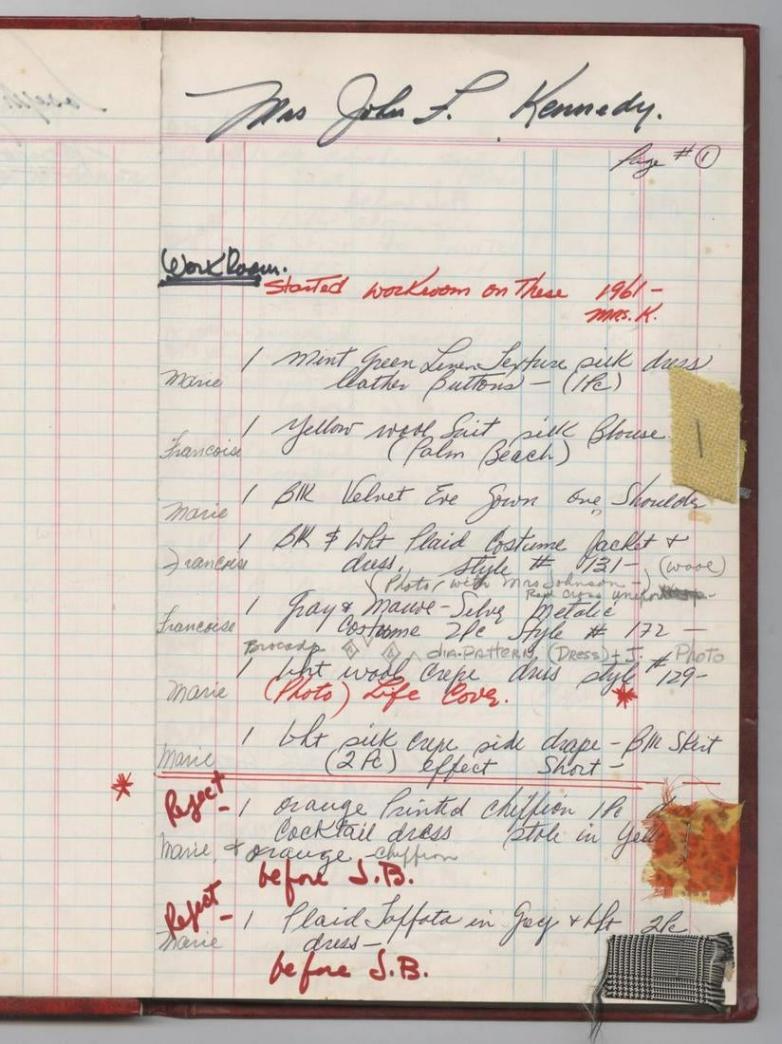 Mrs John F. Kennedy.
Page # 1
Work Room.
Started workroom on these 1961 -
Mrs. K.
1 Mint Green Linen Texture silk dress
Marie leather Buttons - (1Pc)
1 Yellow wool Suit silk Blouse
Francoise (Palm Beach)
1 Blk Velvet Eve Gown one Shoulder
Marie
1 Blk & Wht Plaid Costume Jacket &
Francoise dress. style # 131 - (wool)
(Photo, with Mrs Johnson -)
Red Cross
1 Gray & Mauve - Silver Metalic
Francoise Costume 2Pc Style # 172 -
Brocade DIA. PATTERN (DRESS) + J. Photo
1 Wht wool crepe dress style # 129 -
Marie (Photo) Life Cover. *
1 Wht silk crepe side drape - Blk Skirt
Marie (2 Pc) effect Short -
*
Reject - 1 orange Printed chiffion 1Pc
Cocktail dress stole in
Marie, & orange chiffon
before J.B.
Reject - 1 Plaid Taffata in Grey & Wht 2Pc
Marie dress -
before J.B.